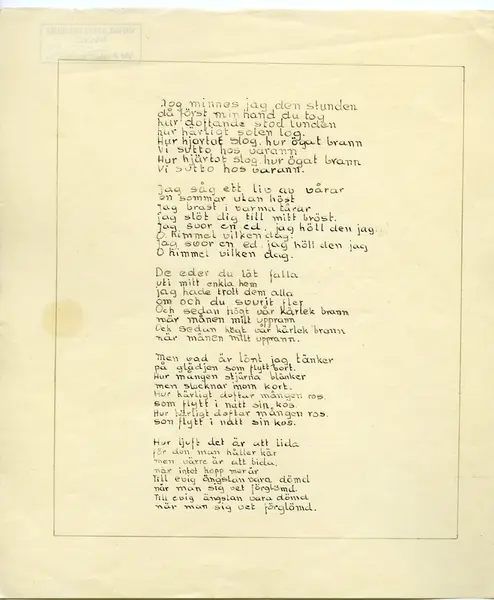 Nog minnes jag den stunden
då först min hand du tog
hur doftande stod lunden
hur härligt solen log.
Hur hjärtat slog, hur ögat brann
Vi sutto hos varann
Hur hjärtat slog, hur ögat brann
Vi sutto hos varann.
Jag såg ett liv av vårar
en sommar utan höst
jag brast i varma tårar
jag slöt dig till mitt bröst.
jag svor en ed, jag höll den jag.
O himmel vilken dag.
jag svor en ed, jag höll den jag
O himmel vilken dag.
De eder du lät falla
uti mitt enkla hem
jag hade trott dem alla
om och du svurit fler
Och sedan högt vår kärlek brann
när månen milt upprann
Och sedan högt vår kärlek brann
när månen milt upprann.
Men vad är lönt jag tänker
på glädjen som flytt bort.
Hur mången stjärna blänker
men slocknar inom kort.
Hur härligt doftar mången ros
som flytt i natt sin kos.
Hur härligt doftar mången ros.
som flytt i natt sin kos.
Hur ljuft det är att lida
för den man håller kär
men värre är att bida,
när intet hopp mer är
Till evig ängslan vara dömd
när man sig vet förglömd.
Till evig ängslan vara dömd
när man sig vet förglömd.